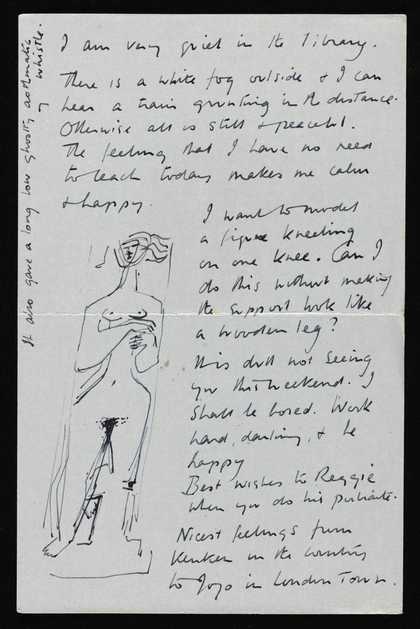 I am very quiet in the library.
There is a white fog outside & I can
hear a train grunting in the distance.
Otherwise all is still & peaceful.
The feeling that I have no need
to teach today makes me calm
& happy.
I want to model
a figure kneeling
on one knee. Can I
do this without making
the support look like
a wooden leg?
It is dull not seeing
you this weekend. I
shall be bored. Work
hard, darling, & be
happy
Best wishes to Reggie
when you do his portrait.
Nicest feelings from
in the country
to Jojo in London Town.
It also gave a long low ghostly asthmatic
whistle.